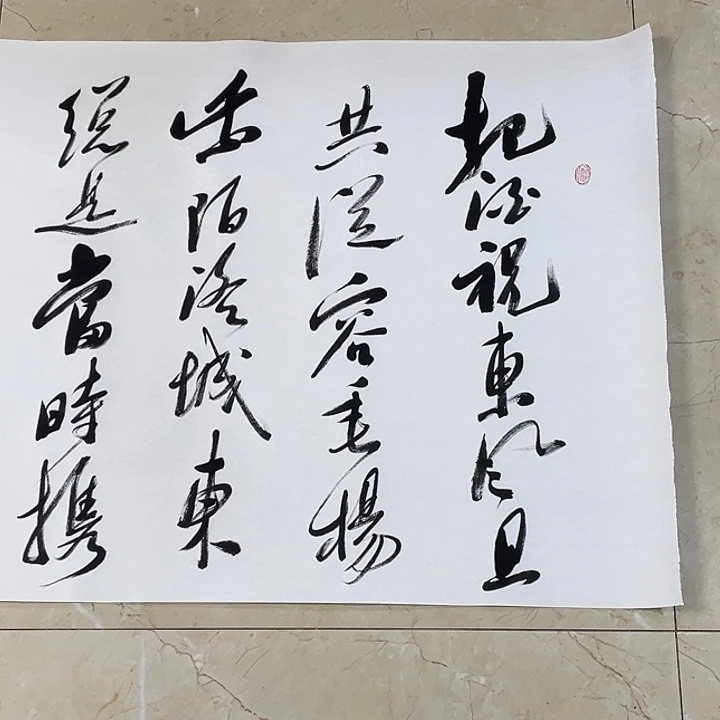 把酒祝東風且
共從容垂楊
紫陌洛城東
總是當時攜